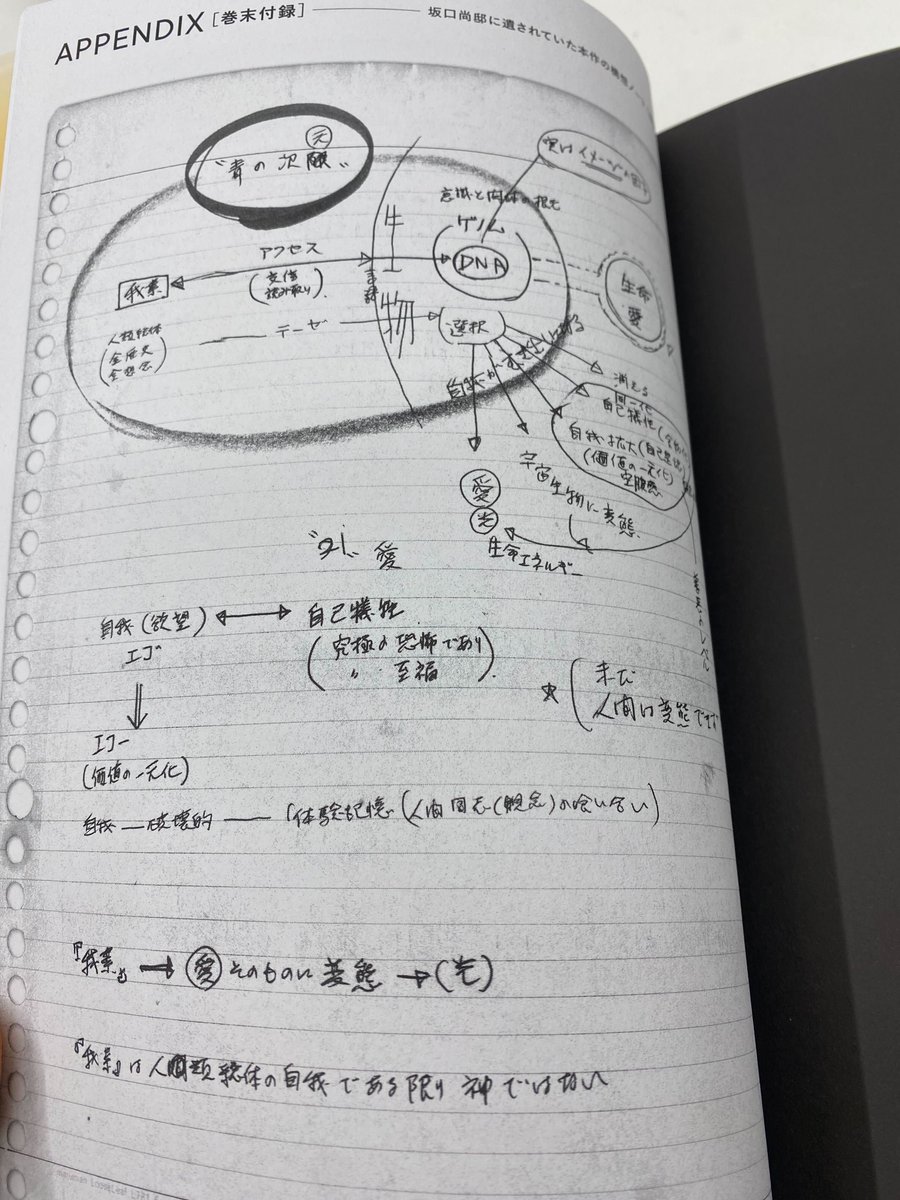 APPENDIX [巻末付録] 坂口尚邸に遺されていた本作の構想ノート
元
“青の次
意識と肉体の
アクセス
(受信
読み取り)
生物
ゲノム
DNA
生命
愛
我素
人類総体
全歴史
全想念
テーゼ
選択
自我が
消える
同一化
自己犠牲
自我拡大(自己
(価値の一元化)
空腹感
宇宙生物に変態
愛
光
生命エネルギー
愛
自我(欲望) ⟷ 自己犠牲
エゴ
(究極の恐怖であり
〃 至福)
⇓
エゴー
(価値の一元化)
人間は変態でき
レベル
自我 — 破壊的 — 「体験記憶(人間同志(観念)の喰い合い)
『我素』 → 愛そのものに変態 → (光)
『我素』は人間類総体の自我である限り神ではない